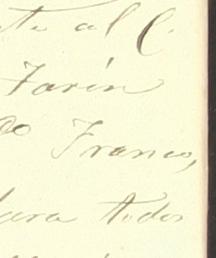 al C.
Farín
do Franco,
para todos